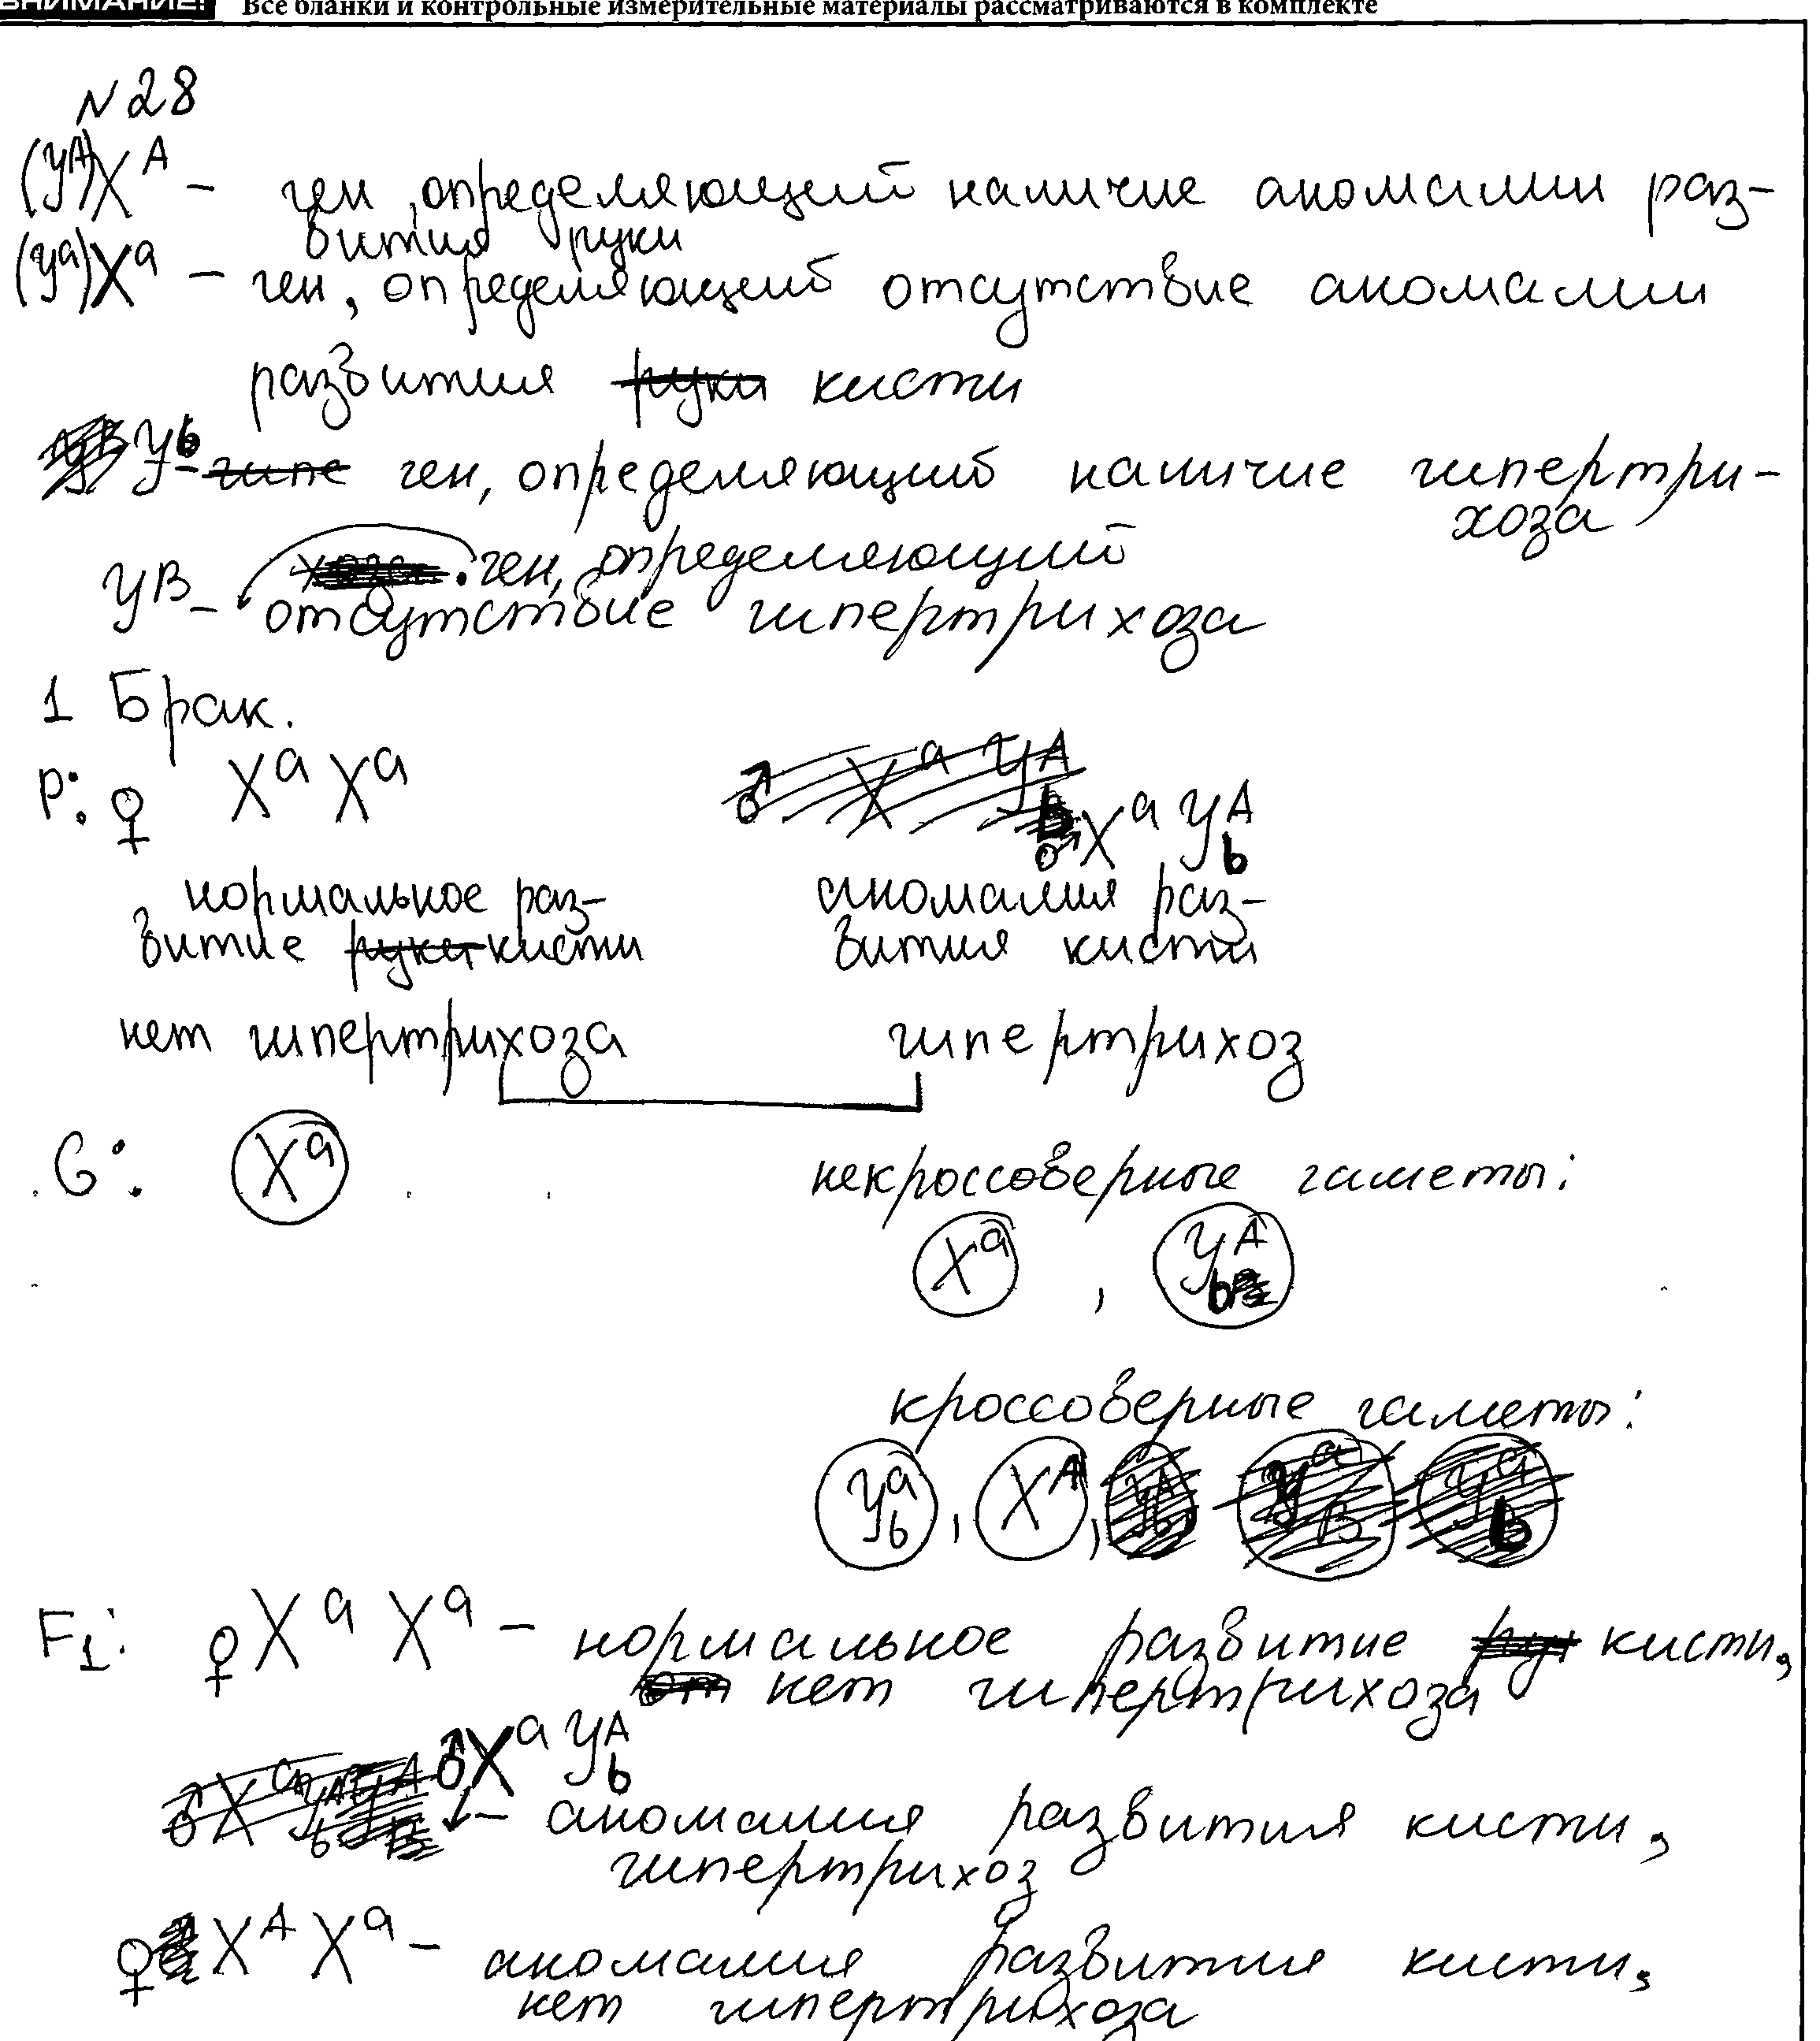 ВНИМАНИЕ! Все бланки и контрольные измерительные материалы рассматриваются в комплекте
N28
(Yᴬ)Xᴬ – ген, определяющий наличие аномалии раз-
вития руки
(Yᵃ)Xᵃ – ген, определяющий отсутствие аномалии
развития руки кисти
Yb – гипе ген, определяющий наличие гипертри-
хоза
YB – ген, определяющий
отсутствие гипертрихоза
1 Брак.
P: ♀ XᵃXᵃ ♂ XᵃYᴬb
нормальное раз- аномалия раз-
витие кисти вития кисти
нет гипертрихоза гипертрихоз
G: Xᵃ некроссоверные гаметы:
Xᵃ , Yᴬb
кроссоверные гаметы:
Yᵃb , Xᴬ,
F₁: ♀XᵃXᵃ – нормальное развитие кисти,
нет гипертрихоза
♂XᵃYᴬb
– аномалия развития кисти,
гипертрихоз
♀ XᴬXᵃ – аномалия развития кисти,
нет гипертрихоза